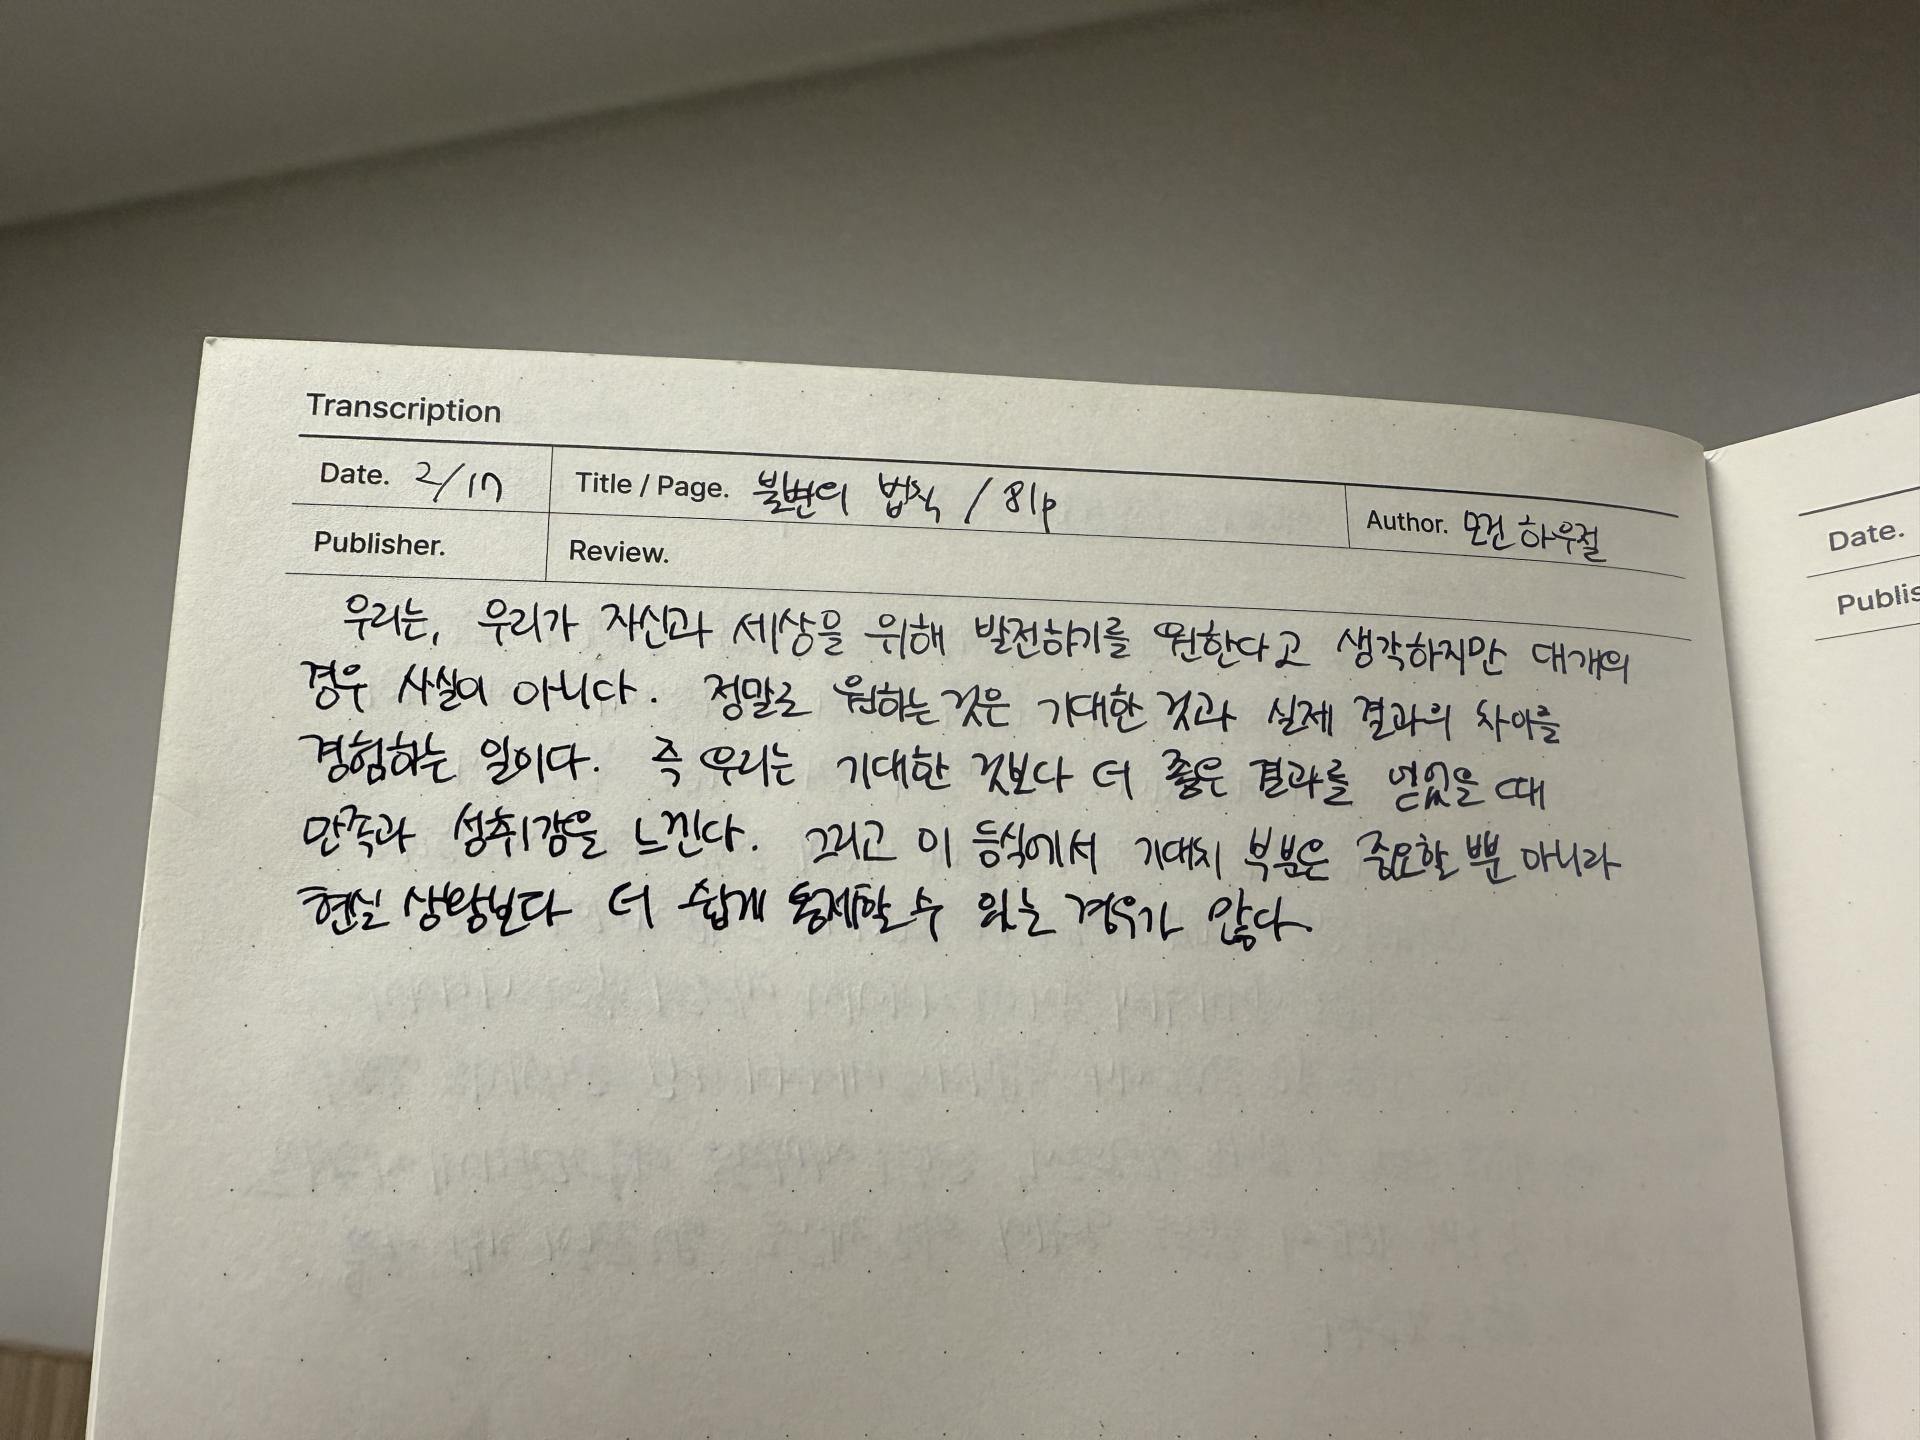 Transcription
Date. 2/17 Title / Page. 불변의 법칙 / 81p Author. 모건 하우절
Publisher. Review.
우리는, 우리가 자신과 세상을 위해 발전하기를 원한다고 생각하지만 대개의
경우 사실이 아니다. 정말로 원하는 것은 기대한 것과 실제 결과의 차이를
경험하는 일이다. 즉 우리는 기대한 것보다 더 좋은 결과를 얻었을 때
만족과 성취감을 느낀다. 그리고 이 등식에서 기대치 부분은 중요할 뿐 아니라
현실 상황보다 더 쉽게 통제할 수 있는 경우가 많다.
Date.
Publis